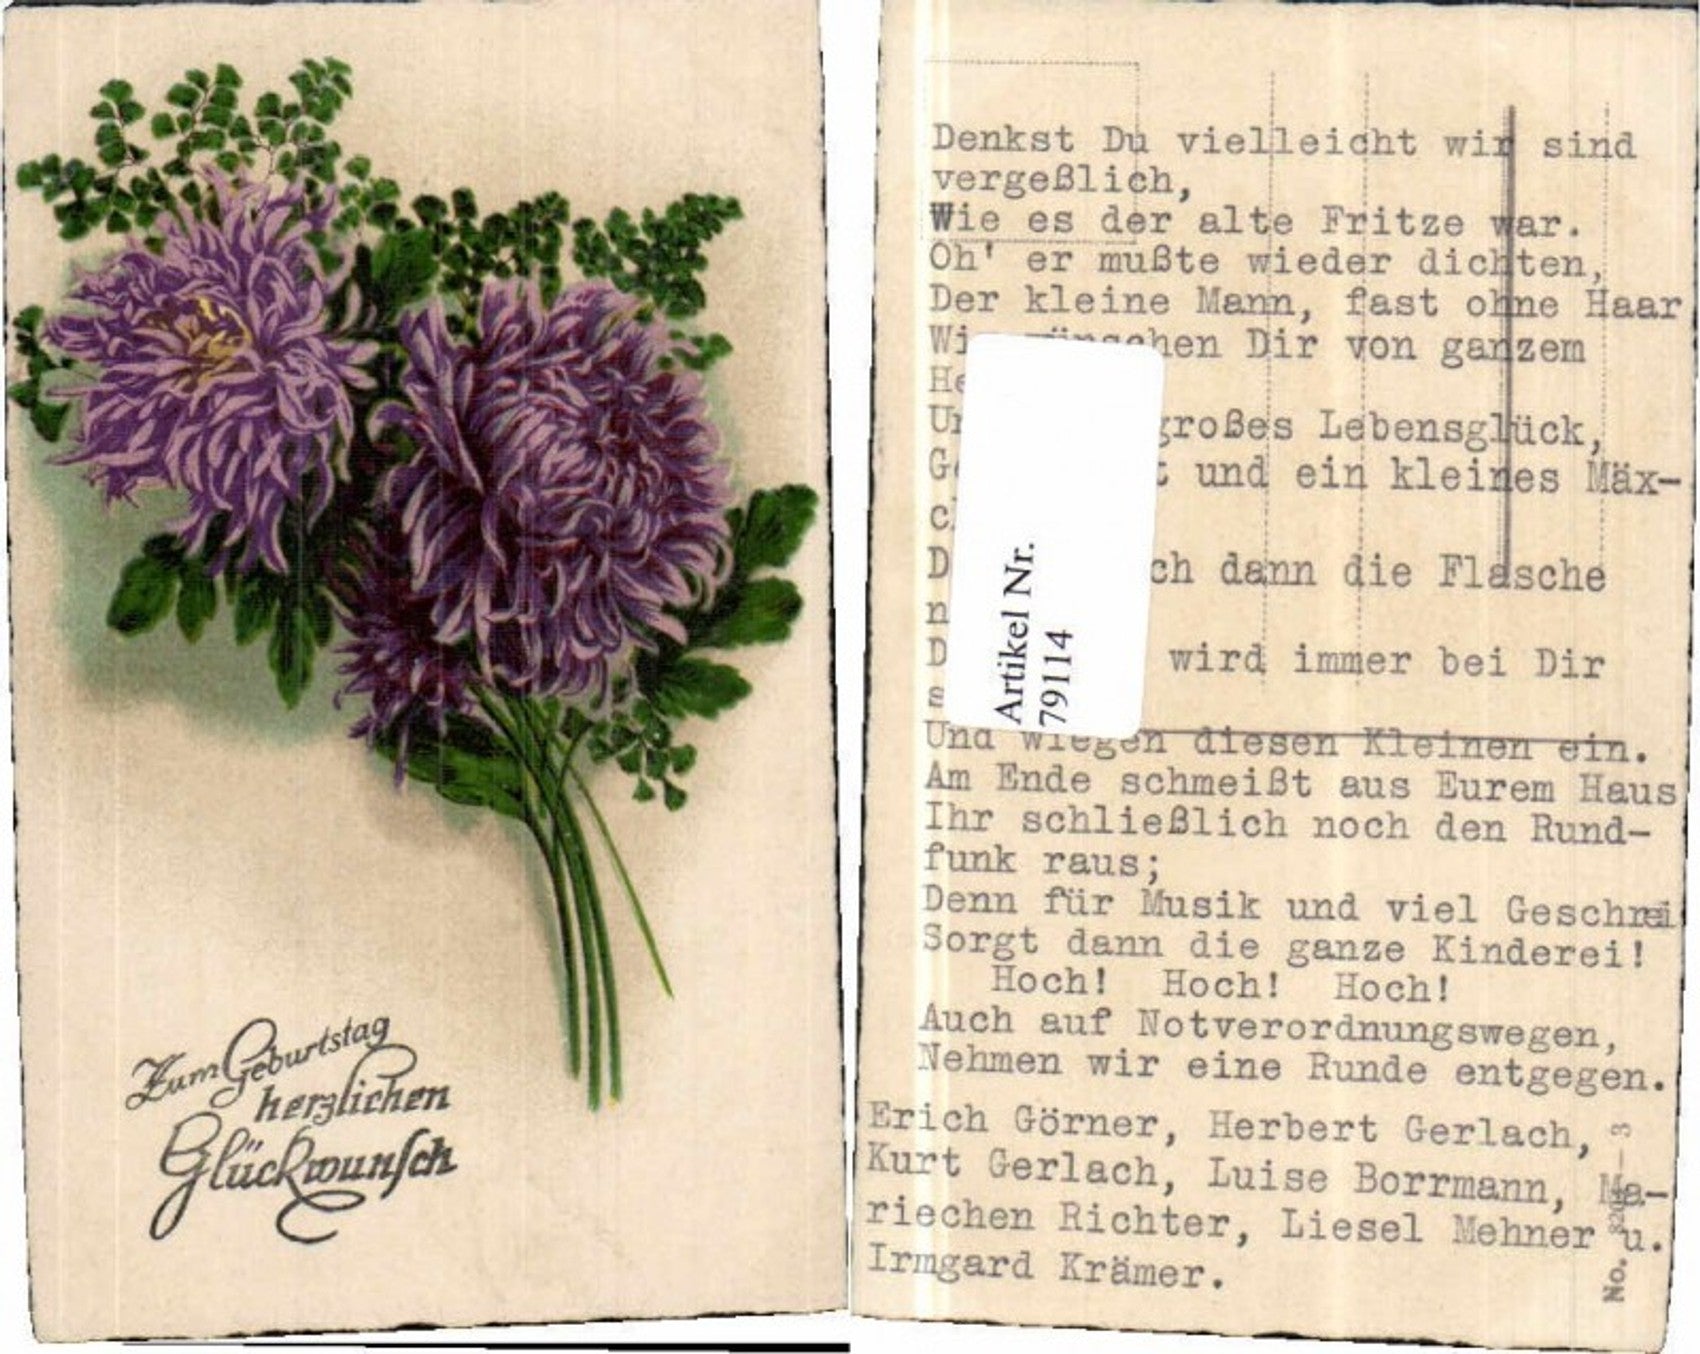 Zum Geburtstag
herzlichen
Glückwunsch
Denkst Du vielleicht wir sind
vergeßlich,
Wie es der alte Fritze war.
Oh' er mußte wieder dichten,
Der kleine Mann, fast ohne Haar
Dir von ganzem
großes Lebensglück,
und ein kleines Mäx-
dann die Flasche
wird immer bei Dir
Und wiegen diesen Kleinen ein.
Am Ende schmeißt aus Eurem Haus
Ihr schließlich noch den Rund-
funk raus;
Denn für Musik und viel Geschrei
Sorgt dann die ganze Kinderei!
Hoch! Hoch! Hoch!
Auch auf Notverordnungswegen,
Nehmen wir eine Runde entgegen.
Erich Görner, Herbert Gerlach,
Kurt Gerlach, Luise Borrmann, Ma-
riechen Richter, Liesel Mehner u.
Irmgard Krämer.
Artikel Nr.
79114
No.